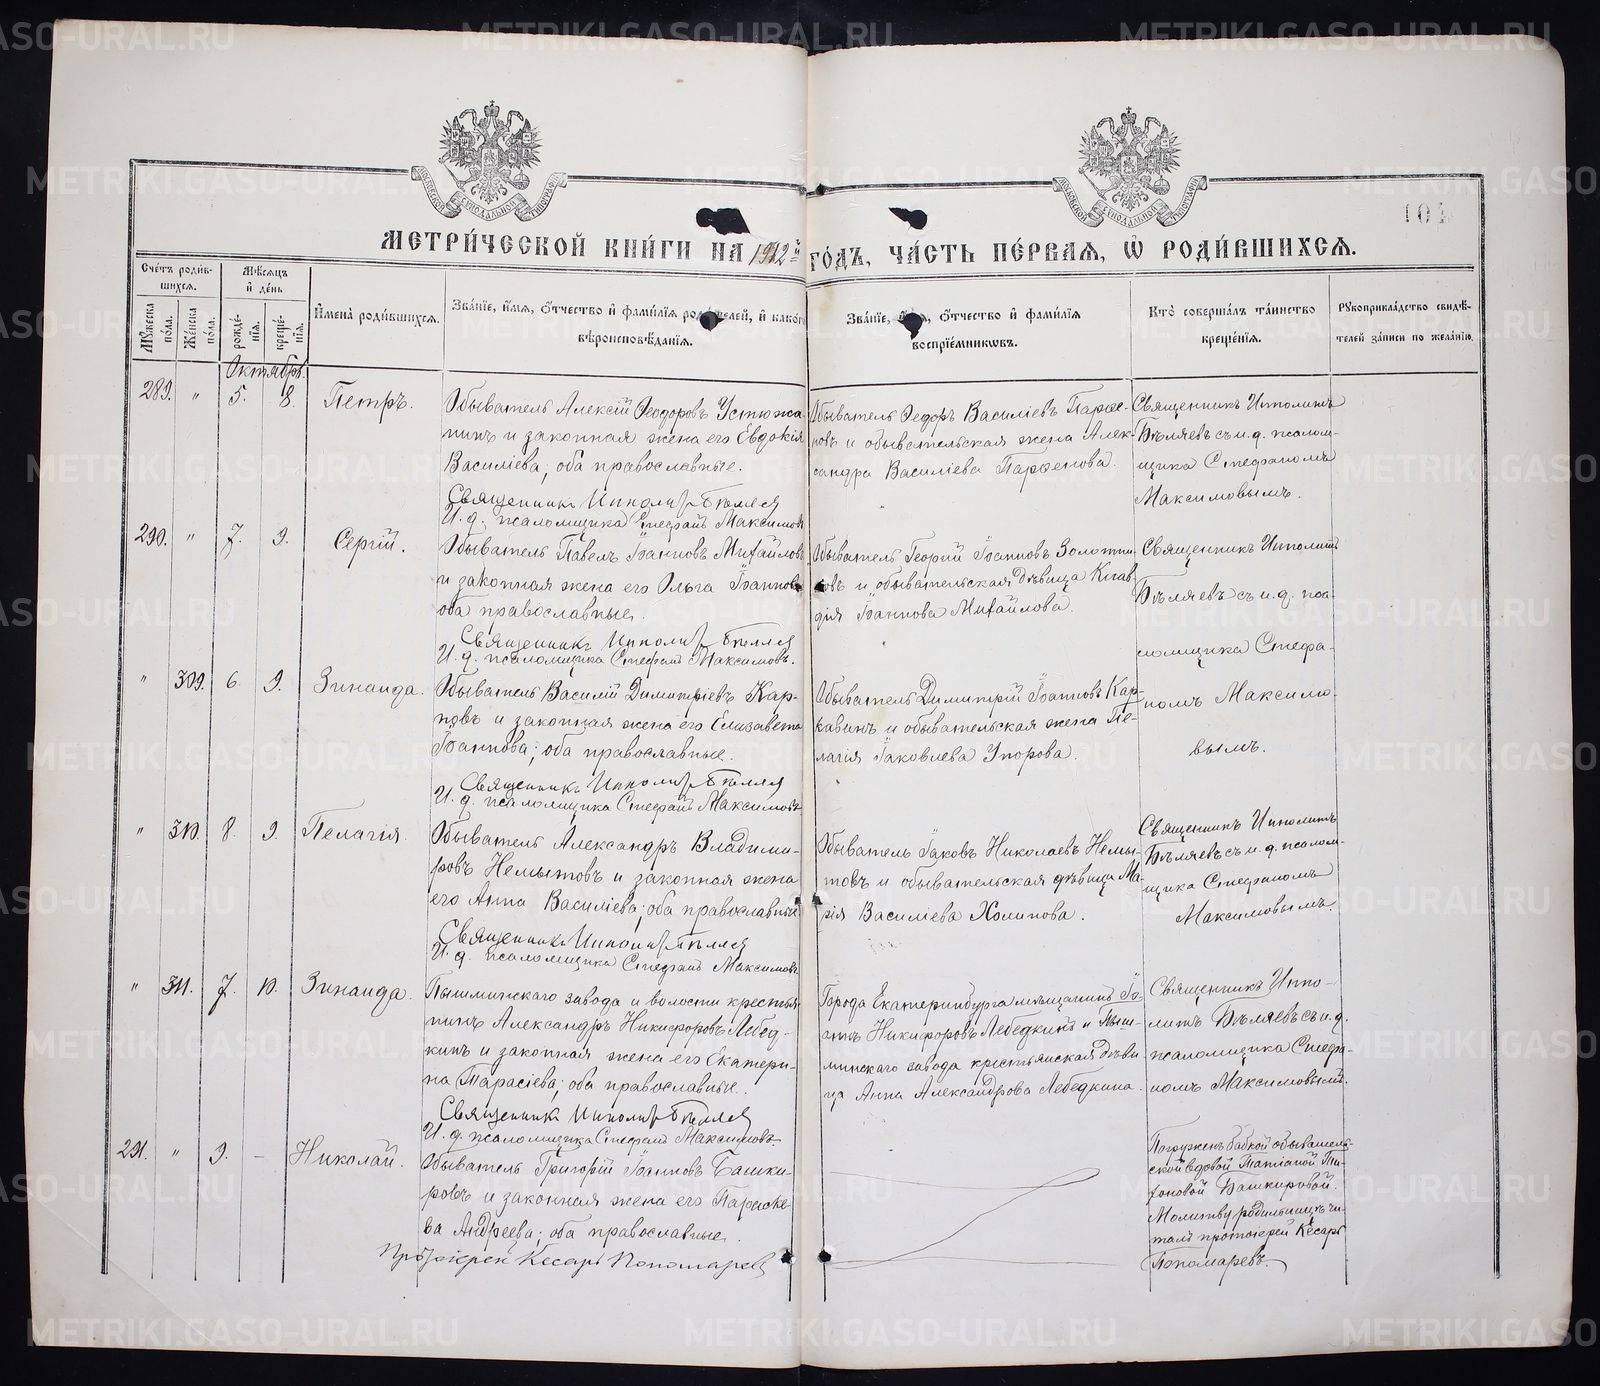 МЕТРИ́ЧЕСКОЙ КНИ́ГИ НА 1912й ГО́ДЪ, ЧА́СТЬ ПЕ́РВАЯ, Ѡ РОДИ́ВШИХСЯ.
104
Сче́тъ роди́вшихся.
Му́жеска по́ла.
Же́нска по́ла.
Мѣ́сяцъ и де́нь
рожде́нія.
креще́нія.
И́мена роди́вшихся.
Зва́ніе, и́мя, о́тчество и фами́лія роди́телей, и како́го
вѣроисповѣ́данія.
Зва́ніе, и́мя, о́тчество и фами́лія
воспріе́мниковъ.
Кто̀ соверша́лъ та́инство
креще́нія.
Рукоприкла́дство свидѣ́-
телей за́писи по жела́нію.
Октябрь.
289. " 5. 8. Петръ.
Обыватель Алексій Ѳеодоровъ Устюжа-
нинъ и законная жена его Евдокія
Василіева; оба православные.
Священникъ Ипполитъ Бѣляев
И. д. псаломщика Стефанъ Максимов
Обыватель Ѳедоръ Василіевъ Парѳе-
новъ и обывательская жена Алек-
сандра Василіева Парѳенова.
Священникъ Ипполитъ
Бѣляевъ съ и. д. псалом-
щика Стефаномъ
Максимовымъ.
290. " 7. 9. Сергій.
Обыватель Павелъ Іоанновъ Михайловъ
и законная жена его Ольга Іоаннова
оба православные.
Священникъ Ипполитъ Бѣляев
И. д. псаломщика Стефанъ Максимовъ.
Обыватель Георгій Іоанновъ Золотни-
ковъ и обывательская дѣвица Клав-
дія Іоаннова Михайлова.
Священникъ Ипполитъ
Бѣляевъ съ и. д. пса-
ломщика Стефа-
номъ Максимо-
вымъ.
" 309. 6. 9. Зинаида.
Обыватель Василій Димитріевъ Кар-
повъ и законная жена его Елизавета
Іоаннова; оба православные.
Священникъ Ипполитъ Бѣляев
И. д. псаломщика Стефанъ Максимовъ
Обыватель Димитрій Іоанновъ Кар-
кавинъ и обывательская жена Пе-
лагія Іаковлева Упорова.
" 310. 8. 9. Пелагія.
Обыватель Александръ Владими-
ровъ Немытовъ и законная жена
его Анна Василіева; оба православные
Священникъ Ипполитъ Бѣляев
И. д. псаломщика Стефанъ Максимовъ
Обыватель Іаковъ Николаевъ Немы-
товъ и обывательская дѣвица Ма-
рія Василіева Холинова.
Священникъ Ипполитъ
Бѣляевъ съ и. д. псалом-
щика Стефаномъ
Максимовымъ.
" 311. 7. 10. Зинаида.
Пышминскаго завода и волости крестья-
нинъ Александръ Никифоровъ Лебед-
кинъ и законная жена его Екатери-
на Тарасіева; оба православные.
Священникъ Ипполитъ Бѣляев
И. д. псаломщика Стефанъ Максимовъ
Города Екатеринбурга мѣщанинъ Іо-
аннъ Никифоровъ Лебедкинъ и Пыш-
минскаго завода крестьянская дѣви-
ца Анна Александрова Лебедкина.
Священникъ Иппо-
литъ Бѣляевъ съ и. д.
псаломщика Стефа-
номъ Максимовымъ.
291. " 9. - Николай.
Обыватель Григорій Іоанновъ Башки-
ровъ и законная жена его Параске-
ва Андреева; оба православные.
Протоіерей Кесарь Пономарев
Погруженъ бабкой обыватель-
ской вдовой Татіаной Ти-
хоновой Башкировой.
Молитву родильницѣ чи-
талъ протоіерей Кесарь
Пономаревъ.
METRIKI.GASO-URAL.RU